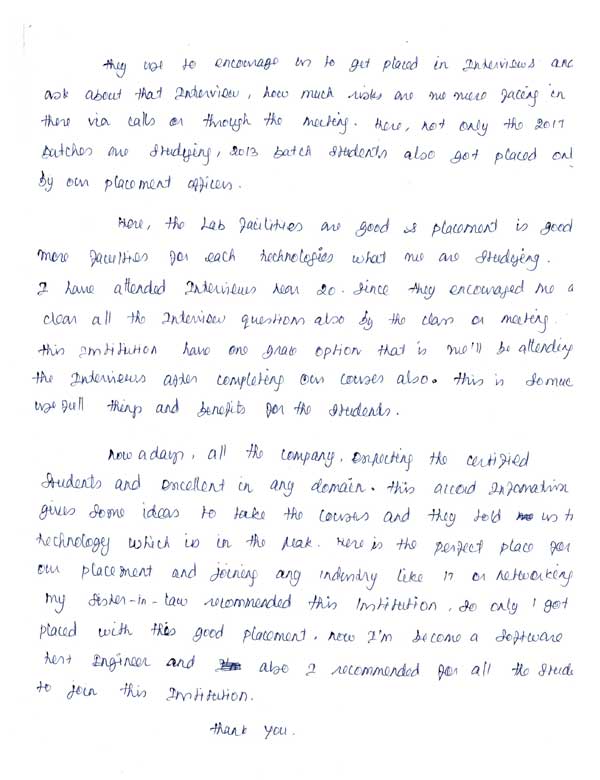 they use to encourage us to get placed in Interviews and
ask about that Interview, how much risks are we were facing in
there via calls or through the meeting. Here, not only the 2017
batches are studying, 2013 batch students also got placed only
by our placement officers.
Here, the Lab facilities are good & placement is good
more faculties for each technologies what we are studying.
I have attended Interviews near 20. Since they encouraged me a
clear all the Interview questions also by the class or meeting.
this Institution have one grab option that is we'll be attending
the Interviews after completing our courses also. this is so muc
usefull things and benefits for the students.
now a days, all the company. Expecting the certified
students and excellent in any domain. this accord Information
gives some ideas to take the courses and they told us th
technology which is in the peak. Here is the perfect place for
our placement and joining any industry like IT or networking
my sister-in-law recommended this Institution. so only I got
placed with this good placement. now I'm become a software
test Engineer and also I recommended for all the stude
to join this Institution.
thank you.